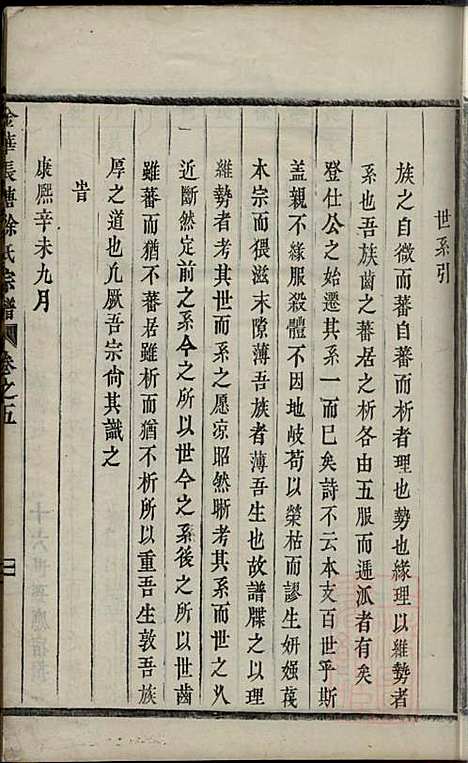 世系引
族之自微而蕃自合而析者理也勢也緣理以維勢者
系也吾族齒之蕃居之析各由五服而遞泒者有矣
登仕公之始遷其系一而已矣詩不云本支百世乎斯
盖親不緣服殺體不因地歧苟以榮枯而謬生妍
本宗而猥滋末隙薄吾族者薄吾生也故譜牒之以理
維勢者考其世而系之愿凉昭然晰考其系而世之久
近斷然定前之系今之所以世今之系後之所以世齒
雖蕃而猶不蕃居雖析而猶不析所以重吾生敦吾族
厚之道也凢厥吾宗尙其識之
旹
康熙辛未九月
金華長塘徐氏宗譜 卷之五
一